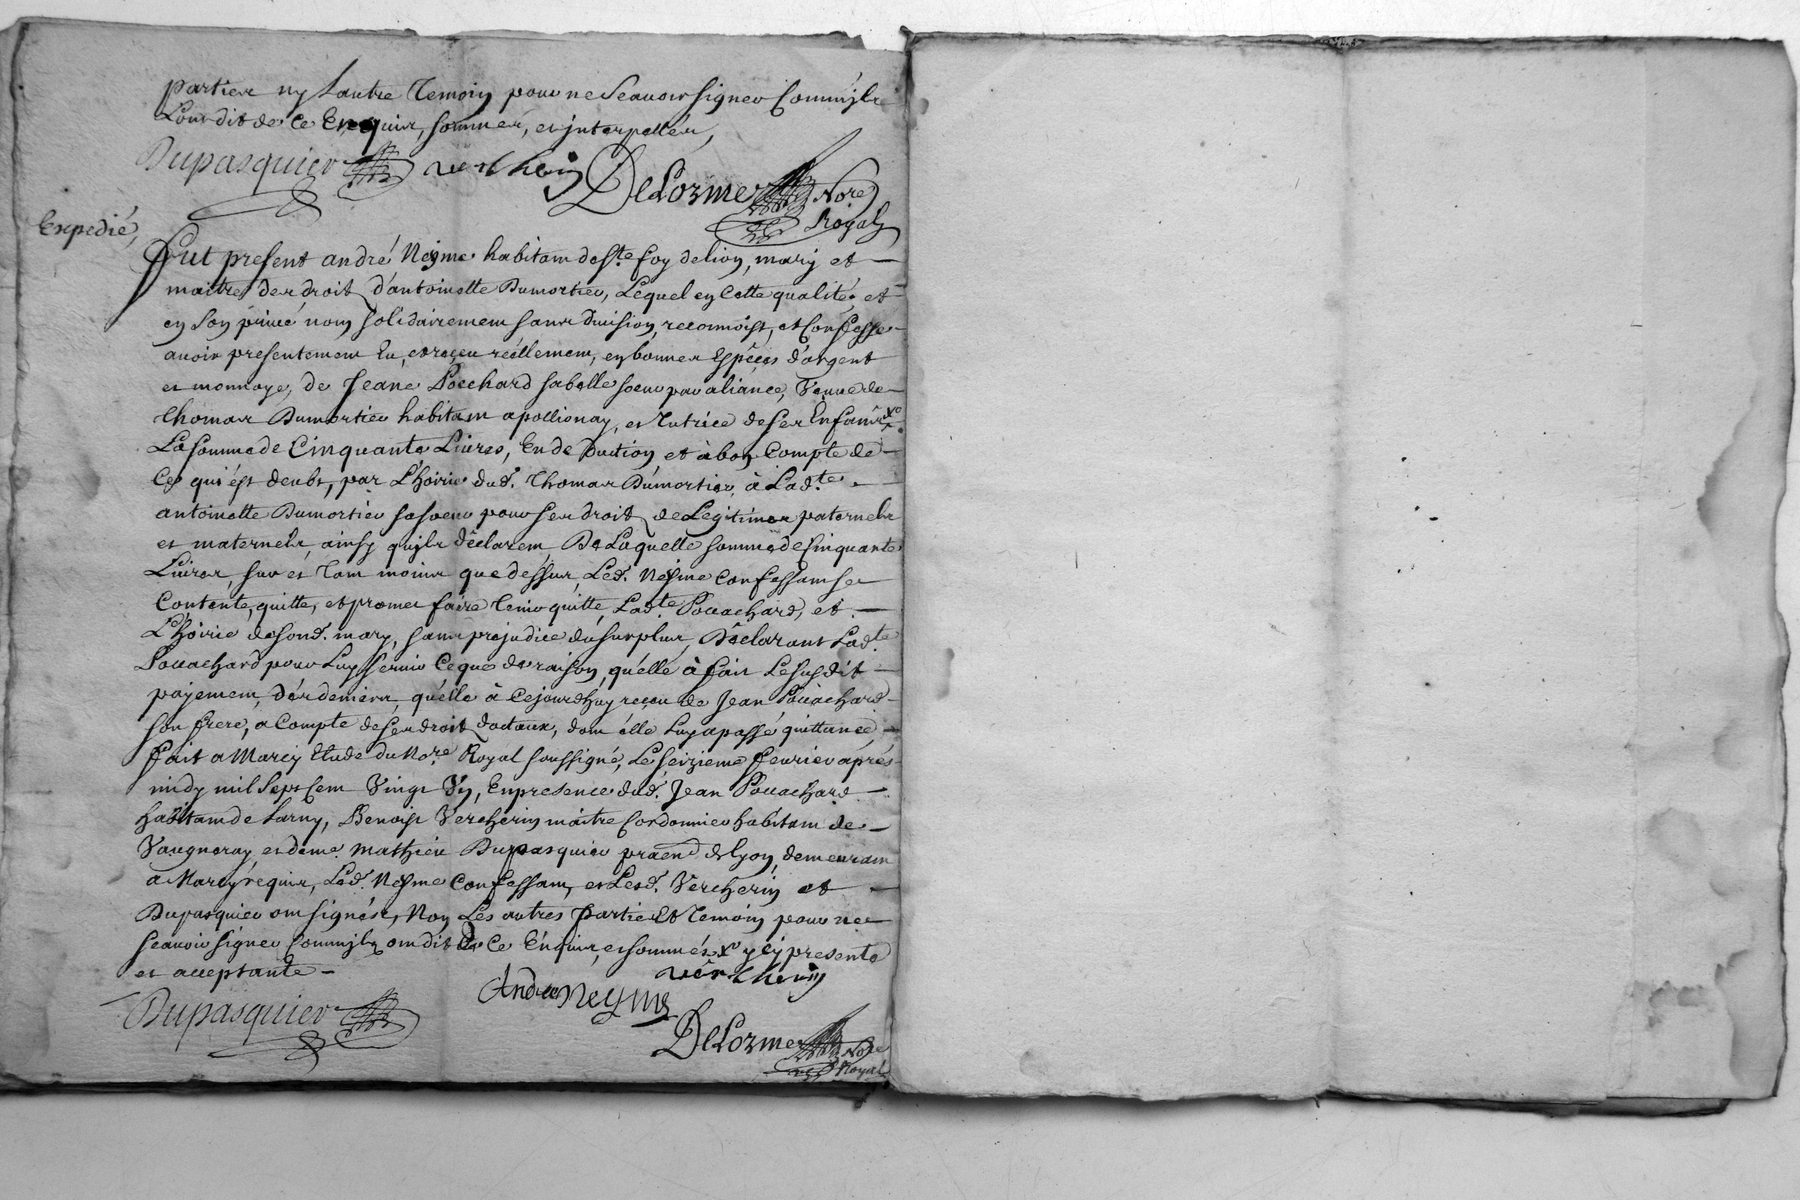 parties ny Lautre Temoin pour ne Scauoir signer Comm'ils
L'ont dit de ce Enquis, sommés, et jnterpellés,
Dupasquier verchein DeLozme Nore
Royal
Expedié,
Fut present andré Neyme habitant de Ste foy de lion, mary et
maitre des droits d'antoinette Dumortier, Lequel en Cette qualité, et
en Son priué nom solidairement sans diuision, reconnoist, et Confesse
auoir presentement Eu, et reçeu réellement, en bonnes Espéces d'argent
et monnoye, de Jeane Pouchard sa belle soeur par aliance, Veuue de
thomas Dumortier habitant a pollionay, et Tutrice de ses Enfants xo
La somme de Cinquante Liures, En deduction et à bon Compte de
Ce qui ést deubt, par L'hoirie dud. Thomas Dumortier, à Lad.te
antoinette Dumortier sa soeur pour ses droits de Legitimes paternels
et maternels, ainsy qu'jls déclarent, De Laquelle somme de Cinquante
Liures, sur et tant moins que dessus, Led. Neyme Confessant se
Contente, quitte, et promet faire tenir quitte, Lad.te Pouachard, et
L'hoirie de sond. mary, sans prejudice du surplus, Déclarant Lad.te
Pouachard pour Luy seruir Ce que de raison, qu'elle à fait Le susdit
payement, des deniers, qu'elle à Cejourd'huy reçeu de Jean Pouachard
son frere, a Compte de ses droits dotaux, dont élle Luy a passé quittance,
fait a Marcy Etude du No.re Royal soussigné, Le seizieme feurier aprés
midy mil sept Cent Vingt Vn, En presence dud. Jean Pouachard
habitant de Larny, Benoist Vercherin maitre Cordonnier habitant de
Vaugneray, et de me. mathieu Dupasquier praen d Lyon, demeurant
a Marcy requis, Led. Neyme Confessant, et Lesd. Vercherin et
Dupasquier ont signés, Non Les autres partie Et Temoin pour ne
Scauoir signer Comm'jls ont dit de Ce Enquis, et sommés xo y cy presente
et acceptante
Dupasquier André neyme verchein
DeLozme Nore
Royal